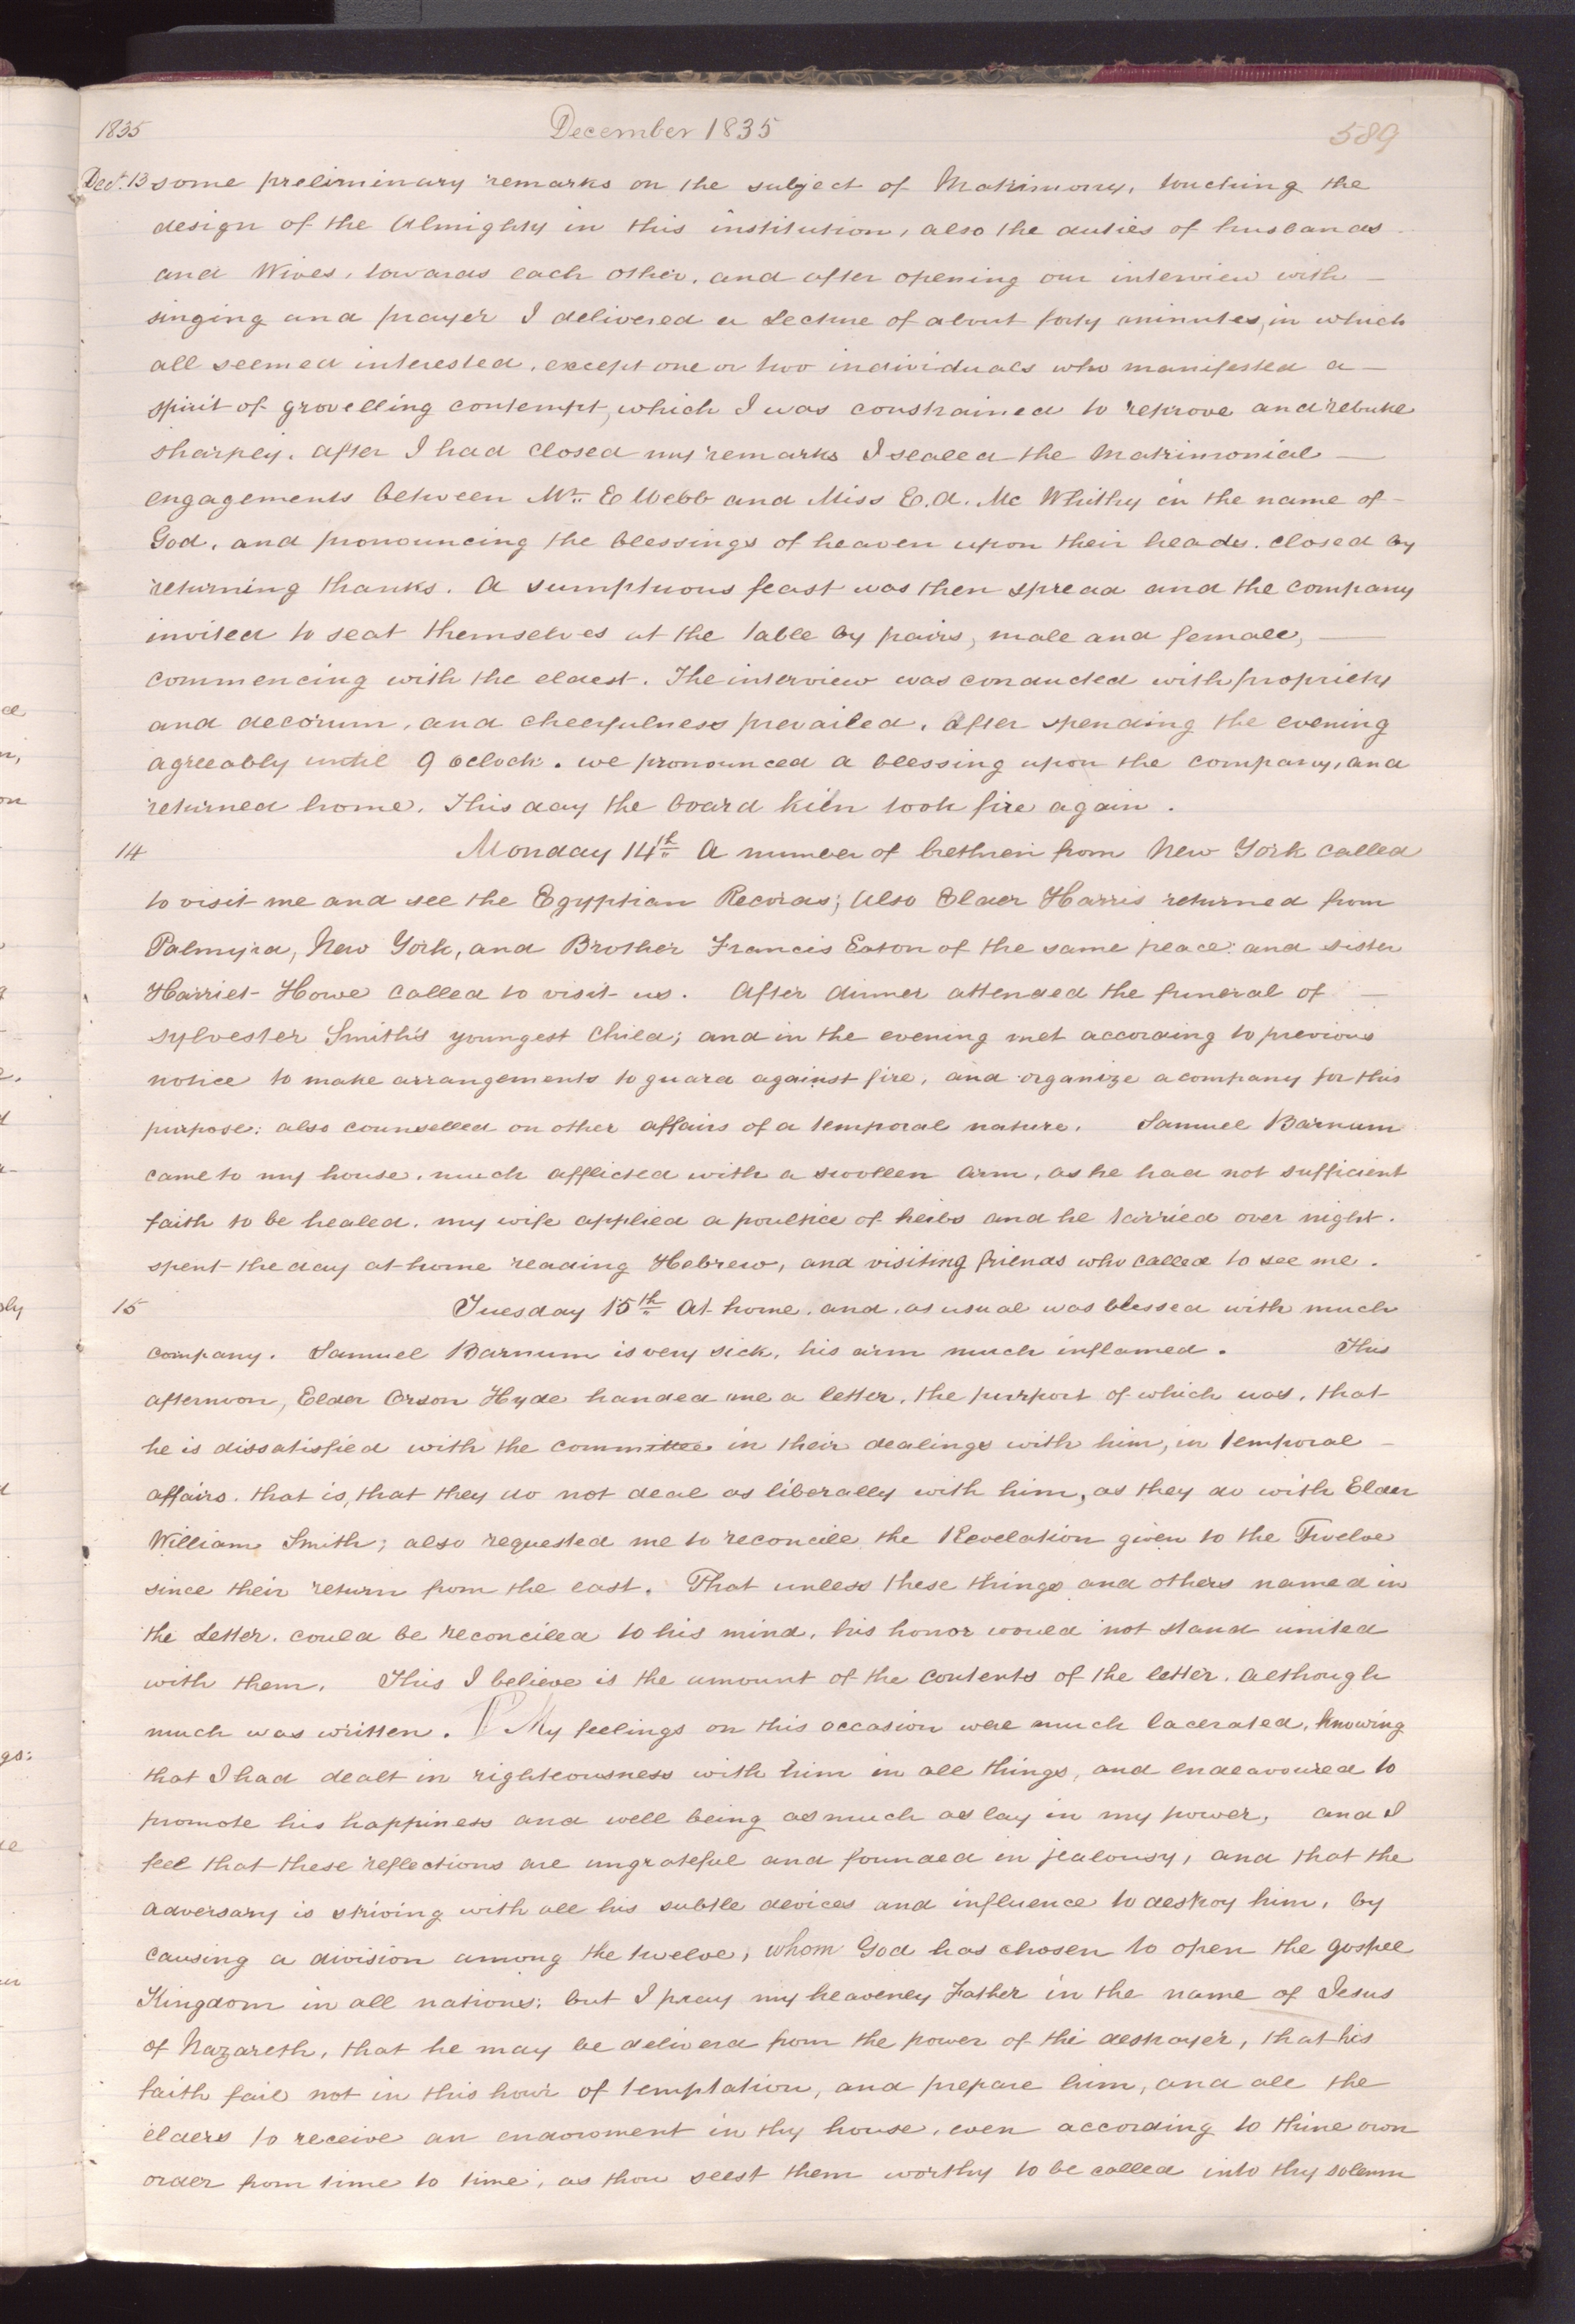 1835 December 1835 589
Dect. 13 some preliminary remarks on the subject of Matrimony, touching the
design of the Almighty in this institution, also the duties of husbands
and Wives, towards each other, and after opening our interview with
singing and prayer I delivered a Lecture of about forty minutes, in which
all seemed interested, except one or two individuals who manifested a
spirit of grovelling contempt, which I was constrained to reprove and rebuke
sharply. After I had closed my remarks I sealed the Matrimonial
engagements between Mr. E Webb and Miss E. A. Mc Whithy in the name of
God, and pronouncing the blessings of heaven upon their heads. closed by
returning thanks. A sumptuous feast was then spread and the company
invited to seat themselves at the table by pairs, male and female,
commencing with the eldest. The interview was conducted with propriety
and decorum, and cheerfulness prevailed. After spending the evening
agreeably until 9 oclock. we pronounced a blessing upon the company, and
returned home. This day the board kiln took fire again.
14 Monday 14th A number of brethren from New York called
to visit me and see the Egyptian Records; Also Elder Harris returned from
Palmyra, New York, and Brother Francis Eaton of the same place: and sister
Harriet Howe called to visit us. After dinner attended the funeral of
Sylvester Smith's youngest Child; and in the evening met according to previous
notice to make arrangements to guard against fire, and organize a company for this
purpose: also counselled on other affairs of a temporal nature. Samuel Barnum
came to my house, much afflicted with a swollen arm, as he had not sufficient
faith to be healed, my wife applied a poultice of herbs and he tarried over night.
spent the day at home reading Hebrew, and visiting friends who called to see me.
15 Tuesday 15th At home, and, as usual was blessed with much
company. Samuel Barnum is very sick, his arm much inflamed. This
afternoon, Elder Orson Hyde handed me a letter, the purport of which was, that
he is dissatisfied with the committee in their dealings with him, in temporal
affairs. that is, that they do not deal as liberally with him, as they do with Elder
William Smith; also requested me to reconcile the Revelation given to the Twelve
since their return from the east. That unless these things and others named in
the Letter, could be reconciled to his mind, his honor would not stand united
with them. This I believe is the amount of the contents of the letter, although
much was written. ¶ My feelings on this occasion were much lacerated, knowing
that I had dealt in righteousness with him in all things, and endeavoured to
promote his happiness and well being as much as lay in my power, and I
feel that these reflections are ungrateful and founded in jealousy, and that the
adversary is striving with all his subtle devices and influence to destroy him, by
causing a division among the twelve, whom God has chosen to open the gospel
Kingdom in all nations: but I pray my heavenly Father in the name of Jesus
of Nazareth, that he may be deliverd from the power of the destroyer, that his
faith fail not in this hour of temptation, and prepare him, and all the
elders to receive an endowment in thy house, even according to thine own
order from time to time, as thou seest them worthy to be called into thy solemn